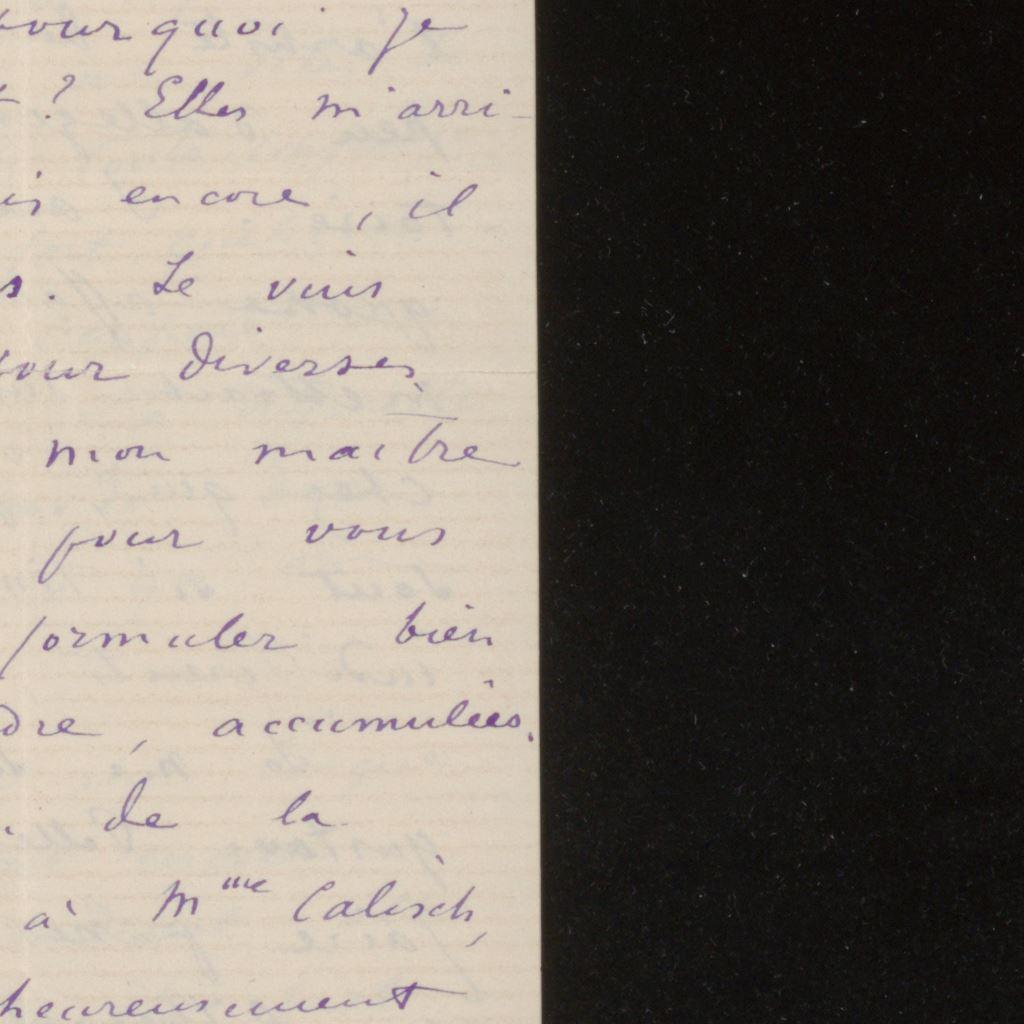 pourquoi je
t ? Elles m'arri-
is encore, il
s. Le vins
pour diverses
mon maître
pour vous
formuler bien
dre, accumulées.
de la
à Mme Calisch,
heureusement